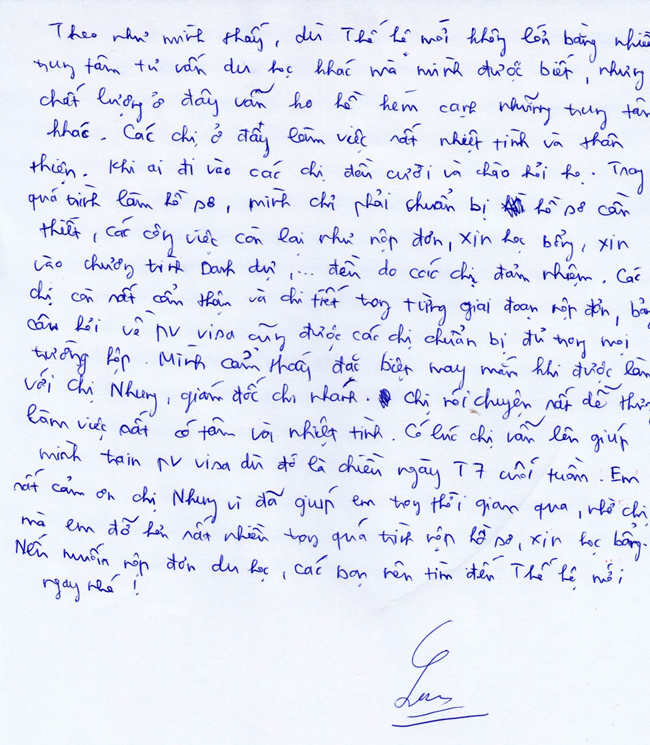 Theo như mình thấy, dù Thế hệ mới không lớn bằng nhiều
trung tâm tư vấn du học khác mà mình được biết, nhưng
chất lượng ở đây vẫn ko hề kém cạnh những trung tâm
khác. Các chị ở đấy làm việc rất nhiệt tình và thân
thiện. Khi ai đi vào các chị đều cười và chào hỏi họ. Trong
quá trình làm hồ sơ, mình chỉ phải chuẩn bị hồ sơ cần
thiết, các công việc còn lại như nộp đơn, xin học bổng, xin
vào chương trình Danh dự,... đều do các chị đảm nhiệm. Các
chị còn rất cẩn thận và chi tiết trong từng giai đoạn nộp đơn, bảng
câu hỏi về PV visa cũng được các chị chuẩn bị đủ trong mọi
trường hợp. Mình cảm thấy đặc biệt may mắn khi được làm
với chị Nhung, giám đốc chi nhánh. Chị nói chuyện rất dễ thương
làm việc rất có tâm và nhiệt tình. Có lúc chị vẫn lên giúp
mình train PV visa dù đó là chiều ngày T7 cuối tuần. Em
rất cảm ơn chị Nhung vì đã giúp em trong thời gian qua, nhờ chị
mà em đỡ hơn rất nhiều trong quá trình nộp hồ sơ, xin học bổng.
Nếu muốn nộp đơn du học, các bạn nên tìm đến Thế hệ mới
ngay nhé!